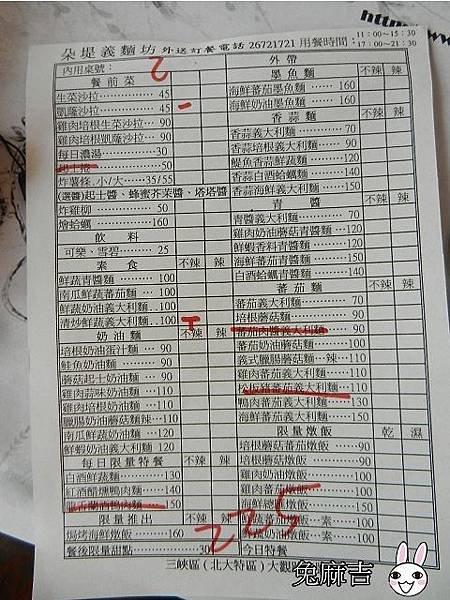 朵堤義麵坊 外送訂餐電話 26721721 用餐時間：11：00～15：30
17：00～21：30
內用桌號： 乙
餐前菜
生菜沙拉 45
凱薩沙拉 45
雞肉培根生菜沙拉 90
雞肉培根凱薩沙拉 90
每日濃湯 30
起士捲 50
炸薯條．小/大 35/55
(選醬)起士醬、蜂蜜芥茉醬、塔塔醬
炸雞柳 50
燴蛤蠣 160
飲料
可樂、雪碧 25
素食 不辣 辣
鮮蔬青醬麵 100
南瓜鮮蔬蕃茄麵 100
鮮蔬奶油義大利麵 100
清炒鮮蔬義大利麵 100
奶油麵 不辣 辣
培根奶油蛋汁麵 90
鮭魚奶油麵 90
蘑菇起士奶油麵 90
雞肉蒜味奶油麵 110
雞肉培根奶油麵 110
臘腸奶油蘑菇麵辣 110
南瓜鮮蔬奶油麵 120
鮮蝦奶油義大利麵 120
每日限量特餐 不辣 辣
白酒鮮蔬麵 130
紅酒醋燻鴨肉麵 140
150
限量推出 不辣 辣
焗烤海鮮燉飯 160
餐後限量甜點 30
外帶
墨魚麵 不辣 辣
海鮮蕃茄墨魚麵 160
海鮮奶油墨魚麵 160
香蒜麵 不辣 辣
香蒜義大利麵 70
香蒜培根義大利麵 90
鯷魚香蒜鮮蔬麵 120
香蒜白酒蛤蠣麵 140
香蒜海鮮義大利麵 150
青醬 不辣 辣
青醬義大利麵 70
雞肉奶油蘑菇青醬麵 120
鮮蝦香料青醬麵 120
海鮮青醬義大利麵 150
白酒蛤蠣青醬麵 150
蕃茄麵 不辣 辣
蕃茄義大利麵 70
培根蘑菇麵 90
蕃茄肉醬義大利麵 90
蕃茄奶油蘑菇麵 100
義式臘腸蘑菇麵--辣 110
雞肉蕃茄義大利麵 110
松板豬蕃茄義大利麵 110
鴨肉蕃茄義大利麵 130
海鮮蕃茄義大利麵 150
限量燉飯 乾 濕
培根蘑菇蕃茄燉飯 90
培根蘑菇燉飯 90
雞肉奶油燉飯 100
雞肉蕃茄燉飯 100
海鮮總匯燉飯 150
蕃茄燉飯--素 100
奶油燉飯--素 100
今日特餐
225
三峽區(北大特區)大觀路
兔麻吉